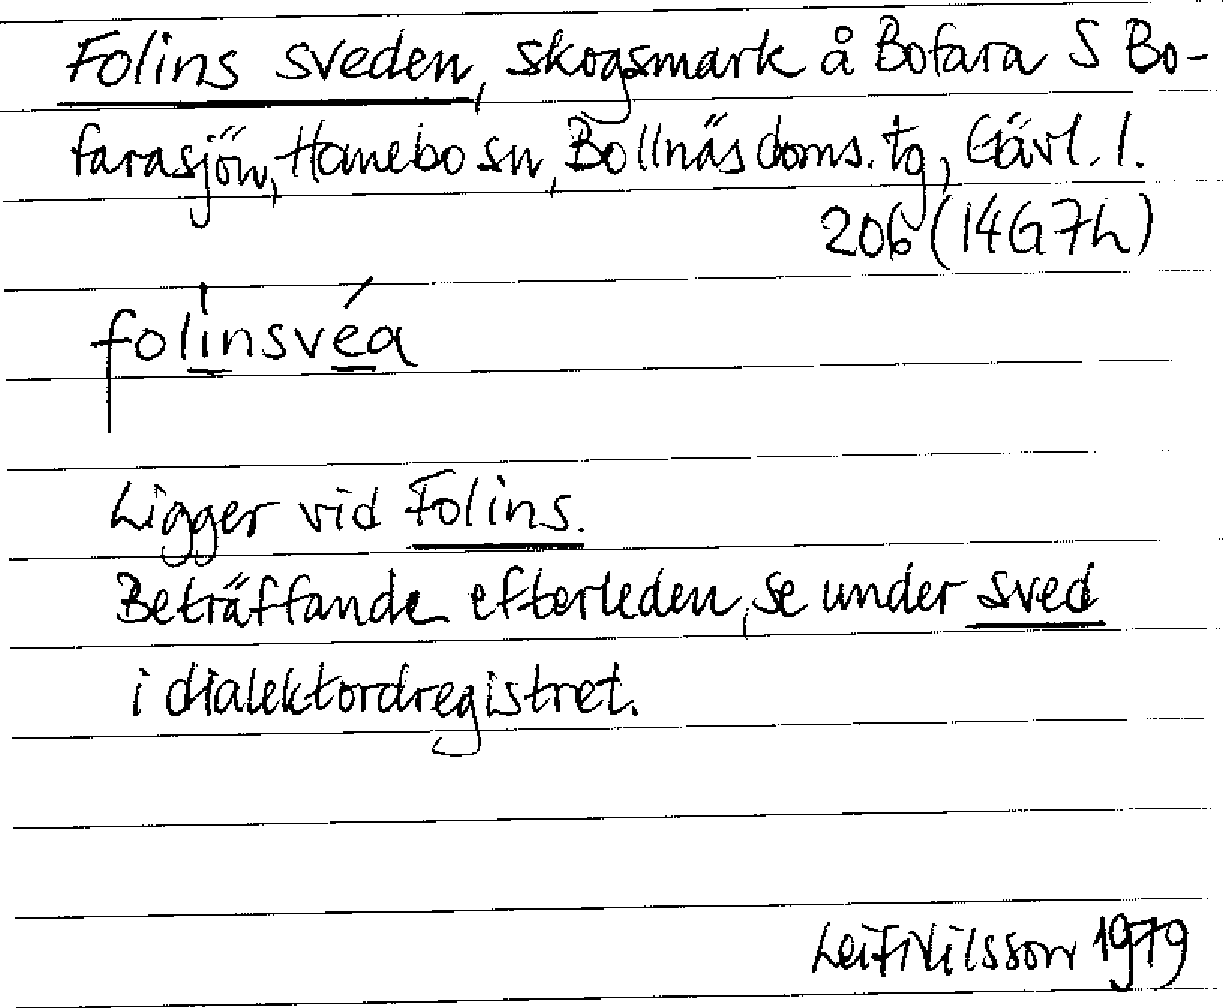 Folins sveden, skogsmark å Bofara S Bo-
farasjön, Hanebo sn, Bollnäs doms. tg, Gävl. l.
206 (14G7h)
folinsvéa
Ligger vid Folins.
Beträffande efterleden, se under sved
i dialektordregistret.
Leif Nilsson 1979